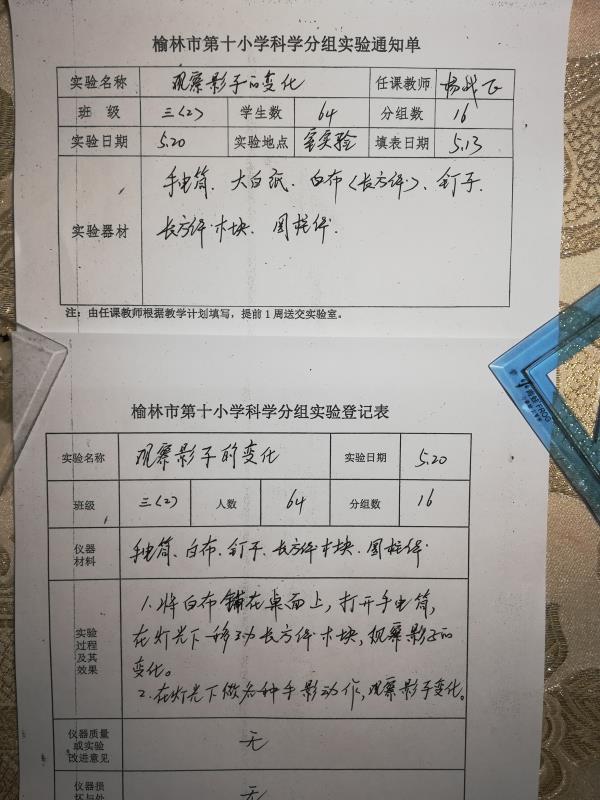 榆林市第十小学科学分组实验通知单
实验名称 观察影子的变化 任课教师
班 级 三(2) 学生数 64 分组数 16
实验日期 5.20 实验地点 实验 填表日期 5.13
实验器材 手电筒、大白纸、白布(长方体)、钉子、
长方体木块、圆柱体.
注：由任课教师根据教学计划填写，提前1周送交实验室。
榆林市第十小学科学分组实验登记表
实验名称 观察影子的变化 实验日期 5.20
班级 三(2) 人数 64 分组数 16
仪器
材料 手电筒、白布、钉子、长方体木块、圆柱体.
实验
过程
及其
效果
1.将白布铺在桌面上，打开手电筒，
在灯光下移动长方体木块，观察影子的
变化。
2.在灯光下做各种手影动作，观察影子变化。
仪器质量
或实验
改进意见 无
仪器损
坏与处 无
FROG